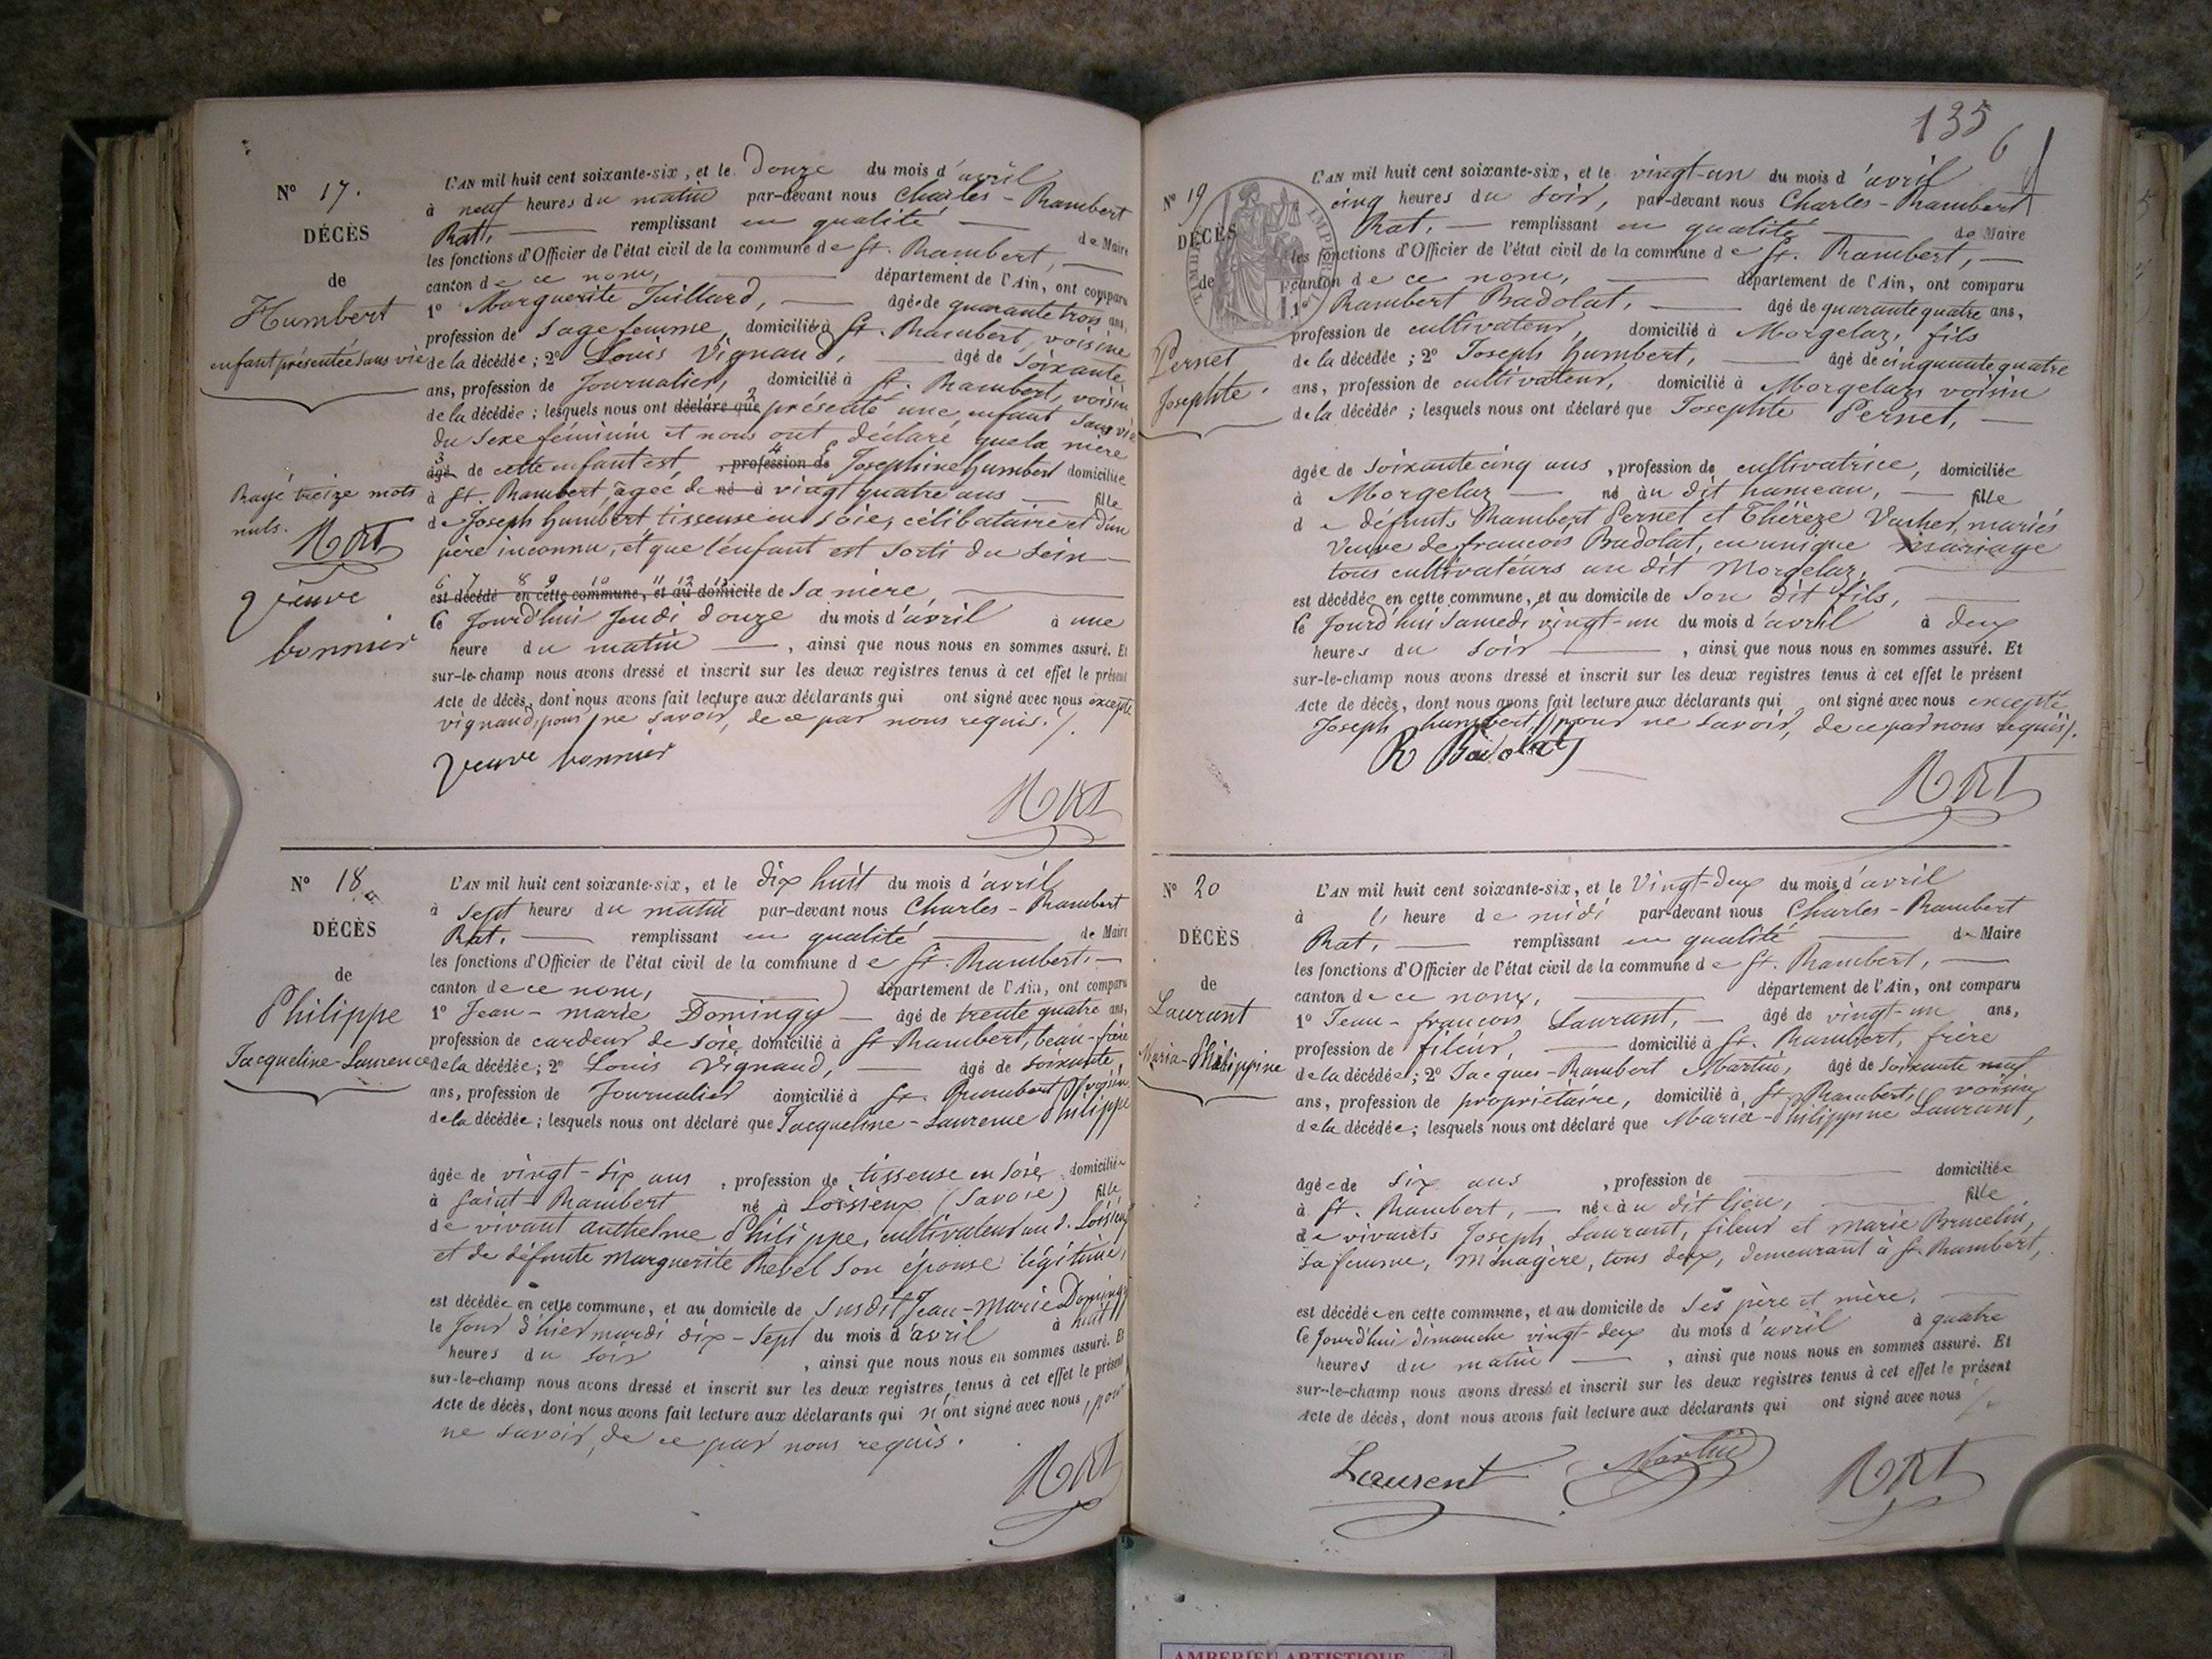 N° 17.
DÉCÈS
de
Humbert
enfant présentée sans vie
Rayé treize mots
nuls.
veuve
bonnier
L'AN mil huit cent soixante-six, et le douze du mois d'avril
à neuf heures du matin par-devant nous Charles-Rambert
Rat, remplissant en qualité de Maire
les fonctions d'Officier de l'état civil de la commune de St. Rambert,
canton de ce nom, département de l'Ain, ont comparu
1° Marguerite Juillard, âgée de quarante trois ans,
profession de sage femme, domiciliée à St. Rambert, voisine
de la décédée; 2° Louis Vignand, âgé de soixante
ans, profession de Journalier, domicilié à St. Rambert, voisin
de la décédée; lesquels nous ont déclaré que présenté une enfant sans vie
du sexe féminin et nous ont déclaré que la mère
âgé de cette enfant est, profession de Josephine Humbert domiciliée
à St. Rambert, âgée de né à vingt quatre ans fille
de Joseph Humbert tisseuse en soie, célibataire et d'un
père inconnu, et que l'enfant est sorti du sein
6 7 8 9 10 11 12 13
est décédé en cette commune, et au domicile de sa mère,
Ce jourd'hui Jeudi douze du mois d'avril à une
heure du matin, ainsi que nous nous en sommes assuré. Et
sur-le-champ nous avons dressé et inscrit sur les deux registres tenus à cet effet le présent
Acte de décès, dont nous avons fait lecture aux déclarants qui ont signé avec nous excepté
vignand, pour ne savoir, de ce par nous requis./.
Veuve bonnier
N° 18
DÉCÈS
de
Philippe
Jacqueline-Laurence
L'AN mil huit cent soixante-six, et le dix huit du mois d'avril
à sept heures du matin par-devant nous Charles-Rambert
Rat, remplissant en qualité de Maire
les fonctions d'Officier de l'état civil de la commune de St. Rambert,
canton de ce nom, département de l'Ain, ont comparu
1° Jean-marie Domingy âgé de trente quatre ans,
profession de cardeur de soie, domicilié à St Rambert, beau-frère
de la décédée; 2° Louis Vignand, âgé de soixante
ans, profession de Journalier domicilié à St. Rambert, voisin
de la décédée; lesquels nous ont déclaré que Jacqueline-Laurence Philippe
âgée de vingt-six ans, profession de tisseuse en soie, domiciliée
à Saint-Rambert né à Loisieux (Savoie) fille
de vivant anthelme Philippe, cultivateur au d. Loisieux
et de défunte Marguerite Rebel son épouse légitime,
est décédée en cette commune, et au domicile de susdit Jean-Marie Domingy
le jour d'hier mardi dix-sept du mois d'avril à huit
heures du soir, ainsi que nous nous en sommes assuré. Et
sur-le-champ nous avons dressé et inscrit sur les deux registres tenus à cet effet le présent
Acte de décès, dont nous avons fait lecture aux déclarants qui n'ont signé avec nous, pour
ne savoir, de ce par nous requis.
135
6
N° 19
DÉCÈS
de
Pernet
Josephte
L'AN mil huit cent soixante-six, et le vingt-un du mois d'avril
cinq heures du soir, par-devant nous Charles-Rambert
Rat, remplissant en qualité de Maire
les fonctions d'Officier de l'état civil de la commune de St. Rambert,
canton de ce nom, département de l'Ain, ont comparu
1° Rambert Badolat, âgé de quarante quatre ans,
profession de cultivateur, domicilié à Morgelaz, fils
de la décédée; 2° Joseph humbert, âgé de cinquante quatre
ans, profession de cultivateur, domicilié à Morgelaz, voisin
de la décédée; lesquels nous ont déclaré que Josephte Pernet,
âgée de soixante cinq ans, profession de cultivatrice, domiciliée
à Morgelaz né au dit hameau, fille
de défunts Rambert Pernet et Thérèze Vacher, mariés
Veuve de francois Badolat, en unique mariage
tous cultivateurs au dit Morgelaz,
est décédée en cette commune, et au domicile de son dit fils,
Ce jourd'hui samedi vingt-un du mois d'avril à deux
heures du soir, ainsi que nous nous en sommes assuré. Et
sur-le-champ nous avons dressé et inscrit sur les deux registres tenus à cet effet le présent
Acte de décès, dont nous avons fait lecture aux déclarants qui ont signé avec nous excepté
Joseph humbert, pour ne savoir, de ce par nous requis/.
R Badolat
N° 20
DÉCÈS
de
Laurant
Maria-Philippine
L'AN mil huit cent soixante-six, et le Vingt-deux du mois d'avril
à heure de midi par-devant nous Charles-Rambert
Rat, remplissant en qualité de Maire
les fonctions d'Officier de l'état civil de la commune de St. Rambert,
canton de ce nom, département de l'Ain, ont comparu
1° Jean-francois Laurant, âgé de vingt-un ans,
profession de fileur, domicilié à St. Rambert, frère
de la décédée; 2° Jacques-Rambert Martin, âgé de soixante neuf
ans, profession de propriétaire, domicilié à St. Rambert, voisin
de la décédée; lesquels nous ont déclaré que Maria-Philippine Laurant,
âgée de six ans, profession de domiciliée
à St. Rambert, née au dit lieu, fille
de vivants Joseph Laurant, fileur et Marie Brucelin,
sa femme, ménagère, tous deux, demeurant à St. Rambert,
est décédée en cette commune, et au domicile de ses père et mère,
Ce jourd'hui dimanche vingt-deux du mois d'avril à quatre
heures du matin, ainsi que nous nous en sommes assuré. Et
sur-le-champ nous avons dressé et inscrit sur les deux registres tenus à cet effet le présent
Acte de décès, dont nous avons fait lecture aux déclarants qui ont signé avec nous /.
Laurent Martin
AMBERIEU ARTISTIQUE